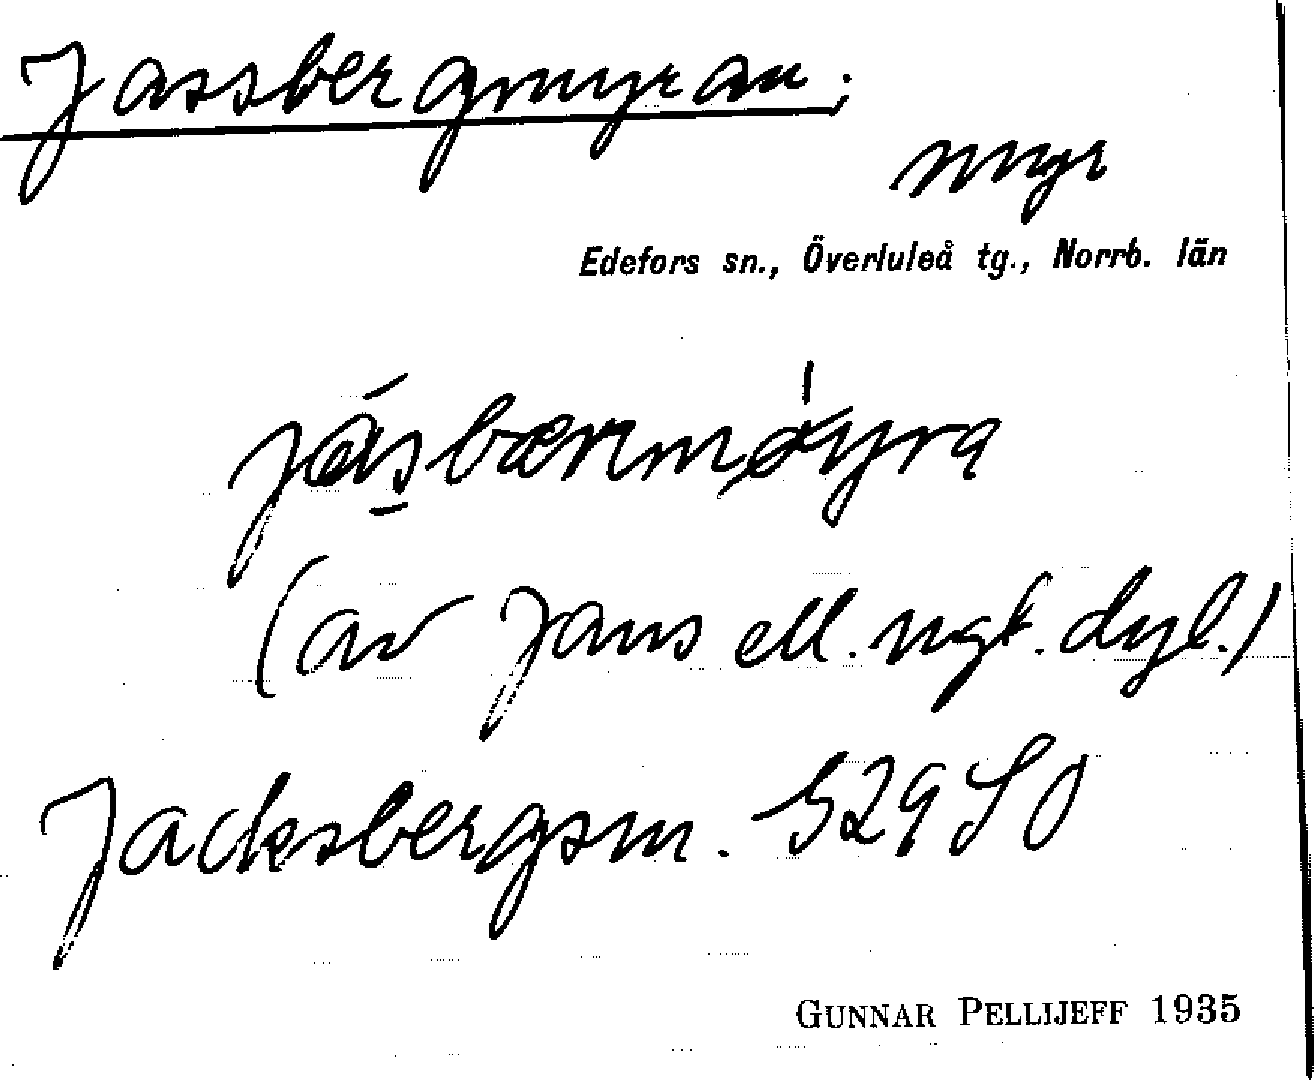 Jassbergmyran;
myr
Edefors sn., Överluleå tg., Norrb. län
jásbærmøyra
(av Jans ell. ngt. dyl.)
Jacksbergsm. 529 SO
GUNNAR PELLIJEFF 1935